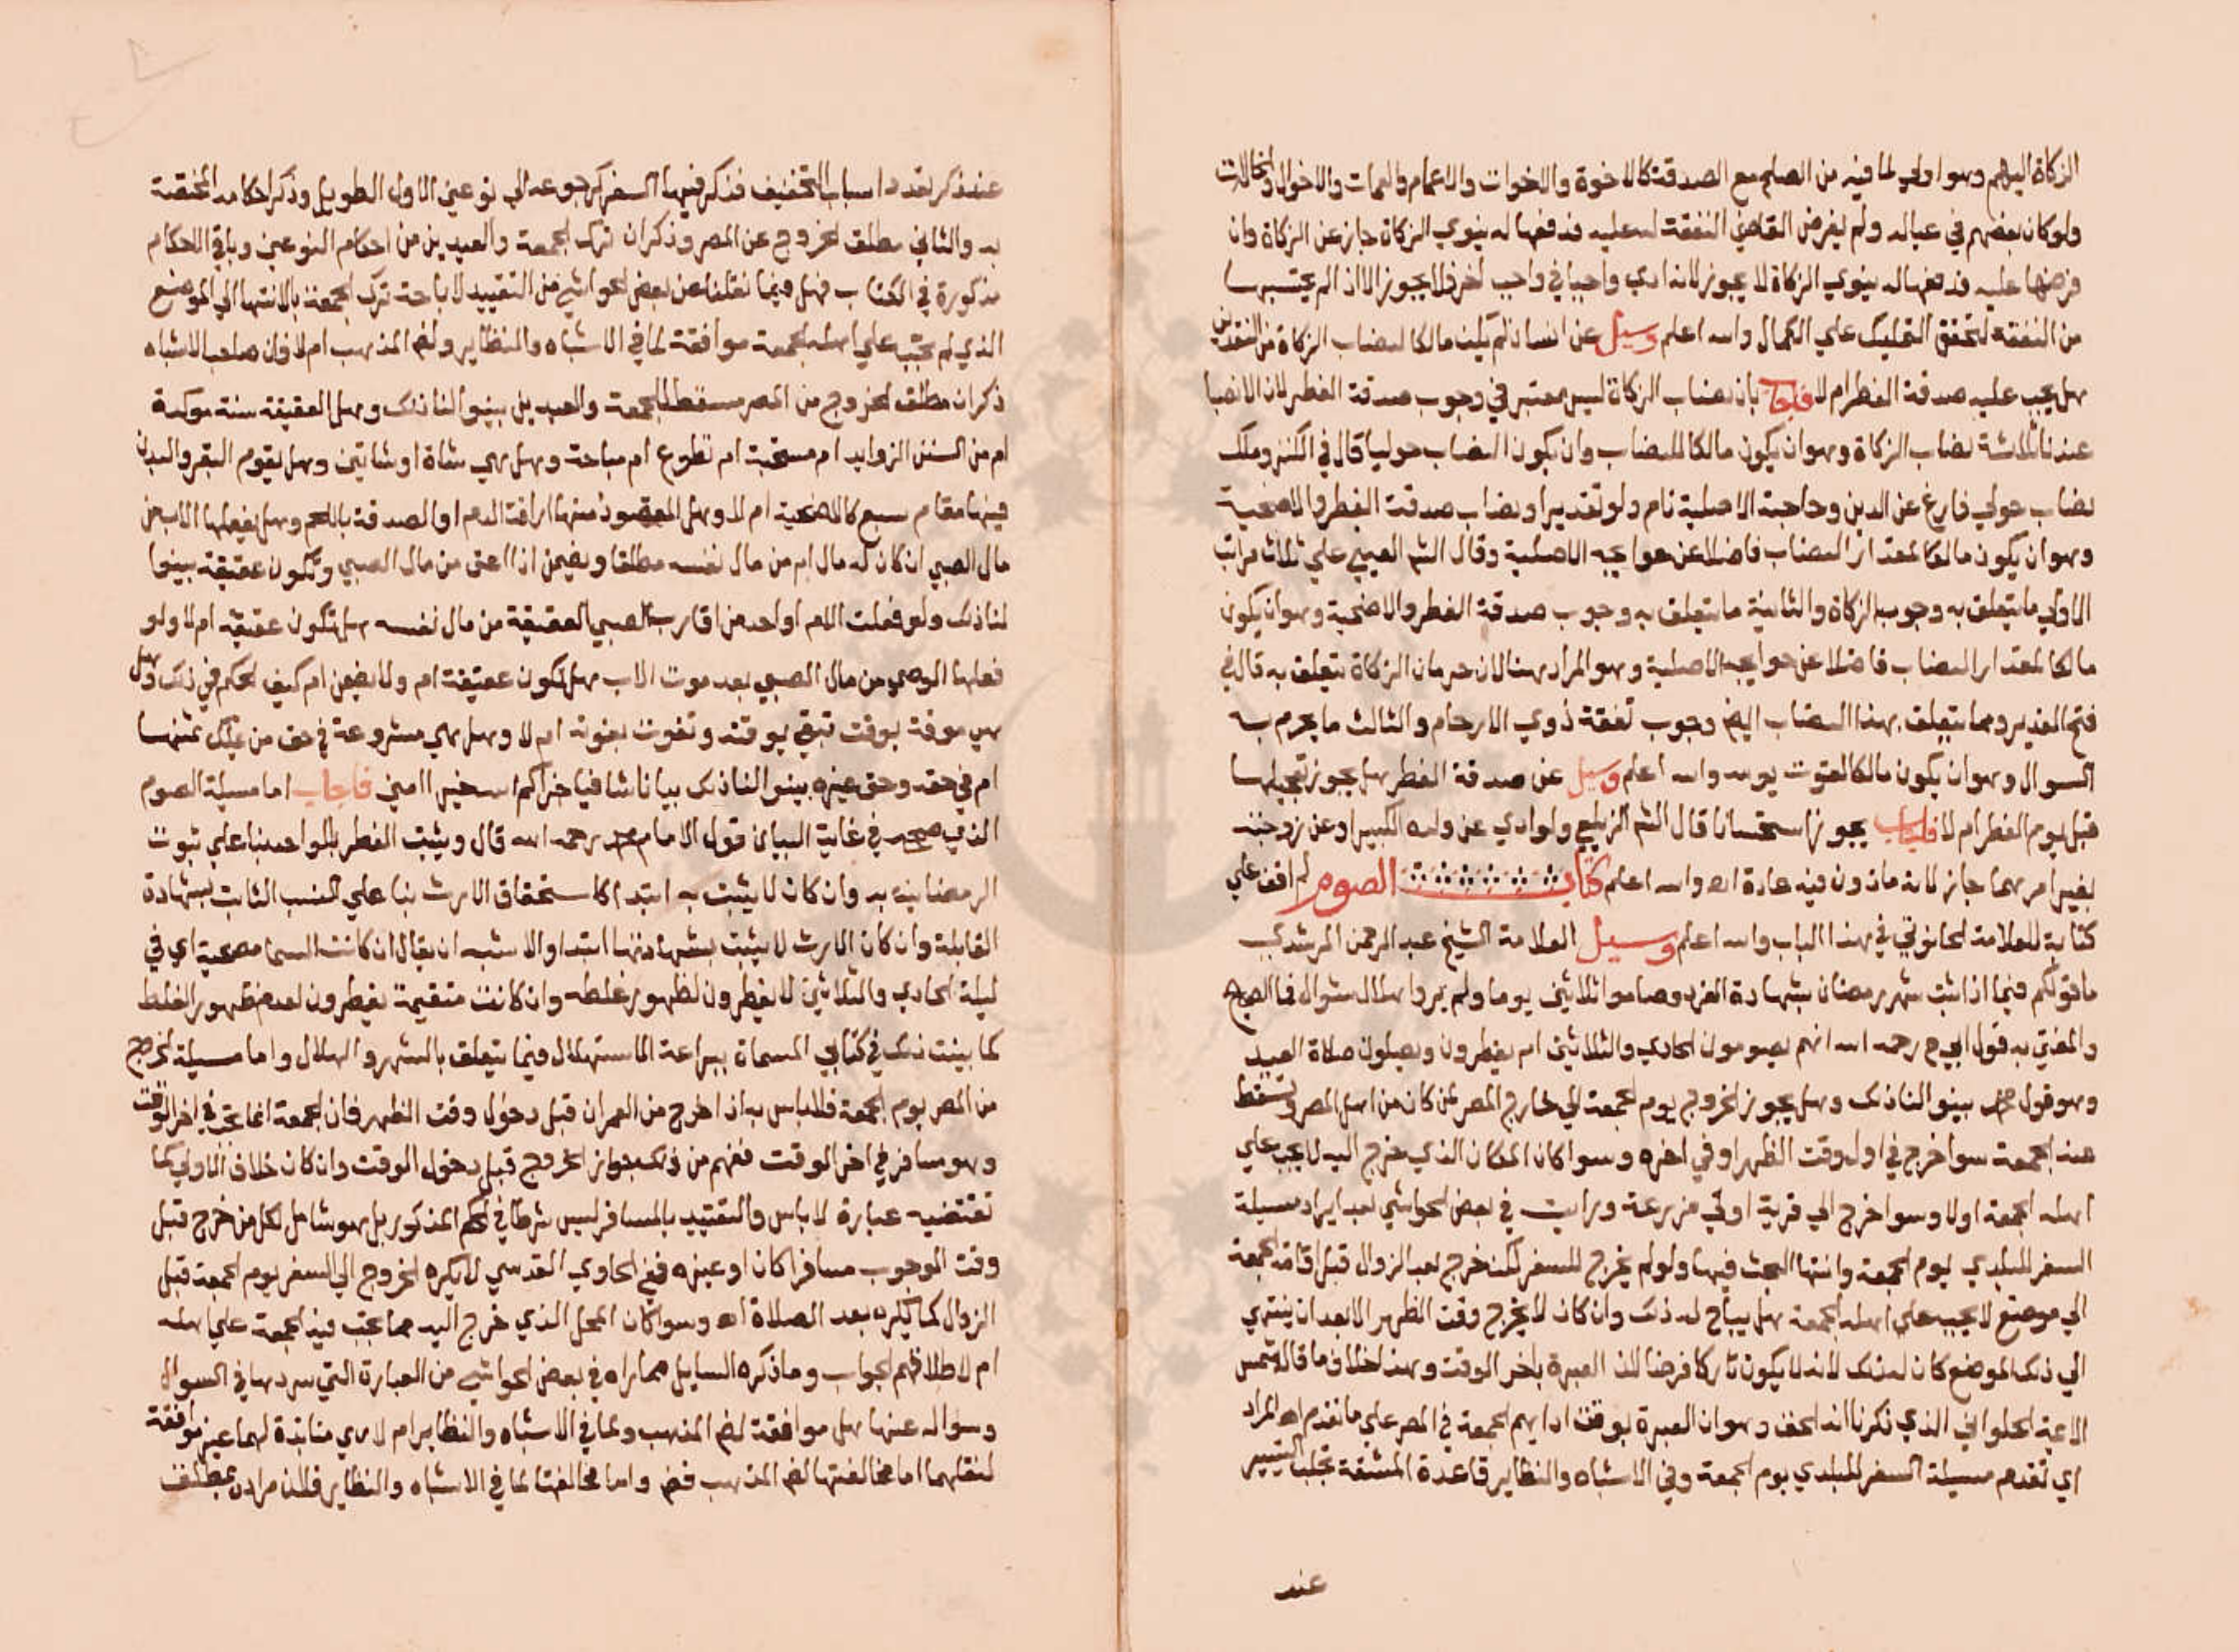 الزكاة اليهم وهو اولي لما فيه من الصلح مع الصدقة كالاخوة والاخوات والاعمام والعمات والاخوال والخالات
ولو كان بعضهم في عياله ولم يفرض القاضي النفقة له عليه فدفعها له ينوي الزكاة جاز عن الزكاة وان
فرضها عليه فدفعها له ينوي الزكاة لا يجوز لانه ادي واجبا في واجب اخر فلا يجوز الا اذا لم يحتسبها
من النفقة لتحقق التمليك علي الكمال والله اعلم وسيل عن انسان لم يكن مالكا لنصاب الزكاة من النقدين
هل يجب عليه صدقة الفطر ام لا فاجاب بان نصاب الزكاة ليس معتبر في وجوب صدقة الفطر لان الانصبا
عندنا ثلاثة نصاب الزكاة وهو ان يكون مالكا للنصاب وان يكون النصاب حوليا قال في الكنز وملك
نصاب حولي فارغ عن الدين وحاجة الاصلية نام ولو تقديرا ونصاب صدقة الفطر والاضحية
وهو ان يكون مالكا لمقدار النصاب فاضلا عن حوايجه الاصلية وقال الشم العيني علي ثلاث مراتب
الاولي ما يتعلق به وجوب الزكاة والثانية ما يتعلق به وجوب صدقة الفطر والاضحية وهو ان يكون
مالكا لمقدار النصاب فاضلا عن حوايجه الاصلية وهو المراد هنا لان حرمان الزكاة يتعلق به قال في
فتح القدير ومما يتعلق بهذا النصاب ايض وجوب نفقة ذوي الارحام والثالث ما يحرم به
السوال وهو ان يكون مالكا لقوت يومه والله اعلم وسيل عن صدقة الفطر هل يجوز تعجيلها
قبل يوم الفطر ام لا فاجاب يجوز استحسانا قال الشم الزيلعي ولو ادي عن ولده الكبير او عن زوجته
بغير امرهما جاز لانه ماذون فيه عادة اهـ والله اعلم كتاب الصوم لم اقف علي
كتابة للعلامة الحانوتي في هذا الباب والله اعلم وسيل العلامة الشيخ عبد الرحمن المرشدي
ما قولكم فيما اذا ثبت شهر رمضان بشهادة الفرد وصاموا ثلاثين يوما ولم يروا هلال شوال فما الصحيح
والمفتي به قول ابي ح رحمه الله انهم يصومون الحادي والثلاثين ام يفطرون ويصلون صلاة العيد
وهو قول محمد بينوا لنا ذلك وهل يجوز الخروج يوم الجمعة الي خارج المصر لمن كان من اهل المصر وتسقط
عنه الجمعة سوا خرج في اول وقت الظهر او في اخره وسوا كان المكان الذي خرج اليه لا يجب علي
اهله الجمعة اولا وسوا خرج الي قرية او الي مزرعة ورايت في بعض الحواشي بعد ايراد مسيلة
السفر للبلدي يوم الجمعة وانتها البحث فيها ولو لم يخرج للسفر لكن خرج بعد الزوال قبل اقامة الجمعة
الي موضع لا يجب علي اهله الجمعة هل يباح له ذلك وان كان لا يخرج وقت الظهر الا بعد ان ينتهي
الي ذلك الموضع كان له ذلك لانه لا يكون تاركا فرضا لان العبرة باخر الوقت وهذا خلاف ما قاله شمس
الايمة الحلواني الذي ذكرنا انه الحق وهو ان العبرة بوقت ادايهم الجمعة في المصر علي ما تقدم اهـ المراد
اي تقدم مسيلة السفر للبلدي يوم الجمعة وفي الاشباه والنظاير قاعدة المشقة تجلب التيسير
عند
عند ذكر تعداد اسباب التخفيف فذكر فيها السفر كرجوعه الي نوعين الاول الطويل وذكر احكامه المختصة
به والثاني مطلق الخروج عن المصر وذكر ان ترك الجمعة والعيدين من احكام النوعين وباقي الاحكام
مذكورة في الكتاب فهل فيما نقلنا عن بعض الحواشي من التقييد لاباحة ترك الجمعة بالانتها الي الموضع
الذي لم تجب علي اهله الجمعة موافقة لما في الاشباه والنظاير ولنص المذهب ام لا فان صاحب الاشباه
ذكر ان مطلق الخروج من المصر مسقط للجمعة والعيدين بينوا لنا ذلك وهل العقيقة سنة موكدة
ام من السنن الزوايد ام مستحبة ام تطوع ام مباحة وهل هي شاة او شاتين وهل يقوم البقر والبدن
فيها مقام سبع كالاضحية ام لا وهل المقصود منها اراقة الدم او الصدقة باللحم وهل يفعلها الاب من
مال الصبي ان كان له مال ام من مال نفسه مطلقا ويضمن اذا عق من مال الصبي وتكون عقيقة بينوا
لنا ذلك ولو فعلت الام او احد من اقارب الصبي العقيقة من مال نفسه هل تكون عقيقة ام لا ولو
فعلها الوصي من مال الصبي بعد موت الاب هل تكون عقيقة ام ولا يضمن ام كيف الحكم في ذلك وهل
هي موقتة بوقت تبقي بوقته وتفوت بفوته ام لا وهل هي مشروعة في حق من يملك ثمنها
ام في حقه وحق غيره بينوا لنا ذلك بيانا شافيا جزاكم الله خيرا امين فاجاب اما مسيلة الصوم
الذي صححه في غاية البيان قول الامام محمد رحمه الله قال ويثبت الفطر بالواحد بنا علي ثبوت
الرمضانية به وان كان لا يثبت به ابتدا كاستحقاق الارث بنا علي النسب الثابت بشهادة
القابلة وان كان الارث لا يثبت بشهادتها ابتدا والاشبه ان يقال ان كانت السما مصحية اي في
ليلة الحادي والثلاثين لا يفطرون لظهور غلطه وان كانت متغيمة يفطرون لعدم ظهور الغلط
كما بينت ذلك في كتابي المسماة ببراعة الاستهلال فيما يتعلق بالشهر والهلال واما مسيلة الخروج
من المصر يوم الجمعة فلا باس به اذا خرج من العمران قبل دخول وقت الظهر فان الجمعة انما تجب في اخر الوقت
وهو مسافر في اخر الوقت ففهم من ذلك جواز الخروج قبل دخول الوقت وان كان خلاف الاولي كما
تقتضيه عبارة لا باس والتقييد بالمسافر ليس شرطا في الحكم المذكور بل هو شامل لكل من خرج قبل
وقت الوجوب مسافرا كان او غيره ففي الحاوي القدسي لا يكره الخروج الي السفر يوم الجمعة قبل
الزوال كما يكره بعد الصلاة اهـ وسوا كان المحل الذي خرج اليه مما تجب فيه الجمعة علي اهله
ام لا طلاقهم الجواب وما ذكره السايل مما راه في بعض الحواشي من العبارة التي سردها في السوال
وسواله عنها هل موافقة لنص المذهب ولما في الاشباه والنظاير ام لا هي منابذة لهما غير موافقة
لنقلهما اما مخالفتها لنص المذهب فنص واما مخالفتها لما في الاشباه والنظاير فلان مراده بمطلق